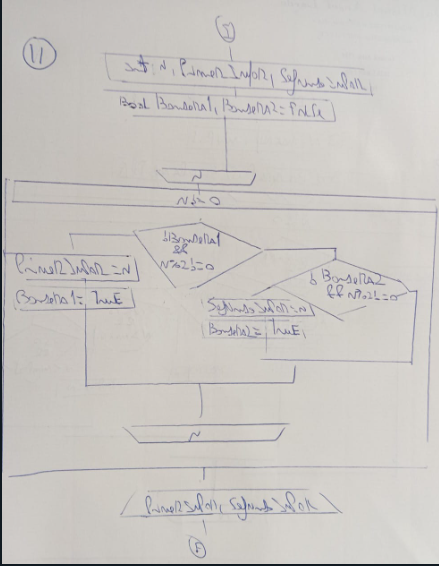 11
I
int N, PrimerImpar, SegundoImpar,
Bool Bandera1, Bandera2 = False
N
N != 0
!Bandera1
&&
N%2!=0
PrimerImpar = N
Bandera1 = TruE
! Bandera2
&& N%2!=0
SegundoImpar = N
Bandera2 = TruE,
N
PrimerImpar, SegundoImpar